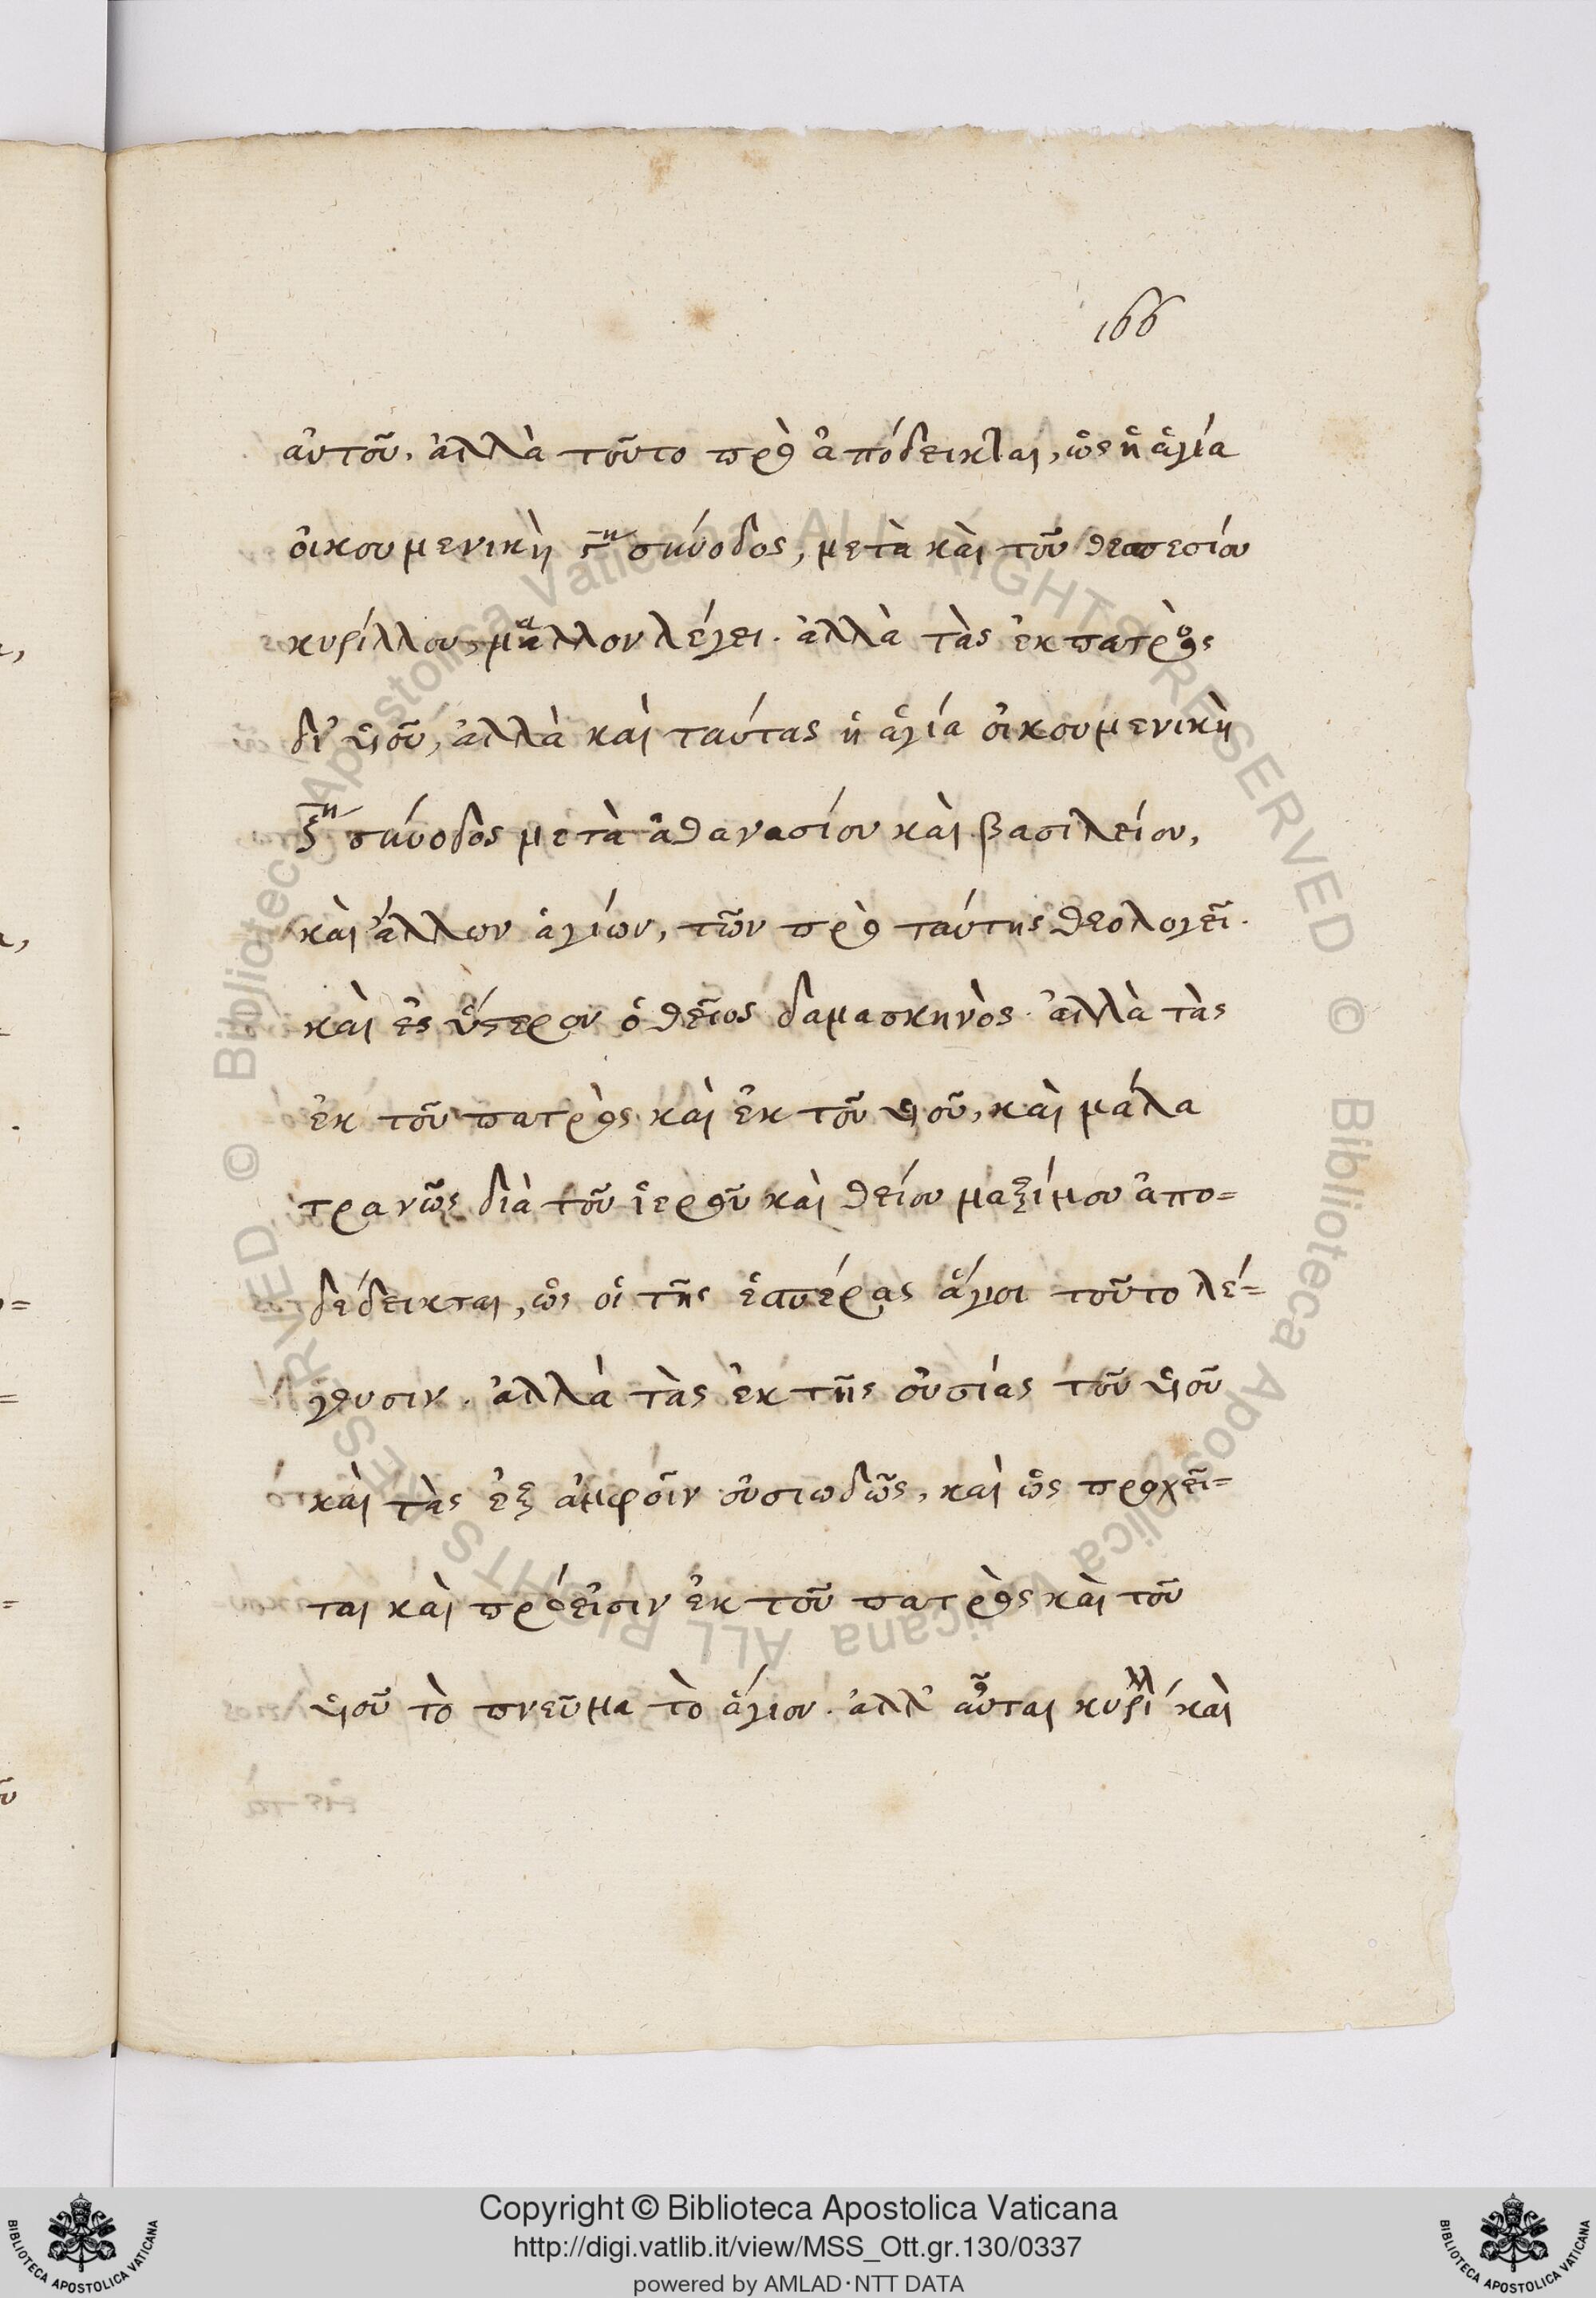 166
αὐτοῦ. ἀλλὰ τοῦτο πρὸ ἀπόδεικται, ὡς ἡ ἁγία
οἰκουμενικὴ ϛ̅η σύνοδος, μετὰ καὶ τοῦ θεσπεσίου
κυρίλλου, μᾶλλον λέγει. ἀλλὰ τὰς ἐκ πατρὸς
δι’ υἱοῦ, ἀλλὰ καὶ ταύτας ἡ ἁγία οἰκουμενικὴ
ζ̅η σύνοδος μετὰ ἀθανασίου καὶ βασιλείου,
καὶ ἄλλων ἁγίων, τῶν πρὸ ταύτης θεολογεῖ.
καὶ ἐς ὕστερον ὁ θεῖος δαμασκηνὸς. ἀλλὰ τὰς
ἐκ τοῦ πατρὸς καὶ ἐκ τοῦ υἱοῦ, καὶ μάλα
τρανῶς διὰ τοῦ ἱεροῦ καὶ θείου μαξίμου ἀπο=
δέδεικται, ὡς οἱ τῆς ἑσπέρας ἅγιοι τοῦτο λέ=
γουσιν. ἀλλά τὰς ἐκ τῆς οὐσίας τοῦ υἱοῦ
καὶ τὰς ἐξ ἀμφοῖν οὐσιωδῶς, καὶ ὡς προχεῖ=
ται καὶ πρόεισιν ἐκ τοῦ πατρὸς καὶ τοῦ
υἱοῦ τὸ πνεῦμα τὸ ἅγιον. ἀλλ’ αὗται κυριλλ καὶ
Copyright © Biblioteca Apostolica Vaticana
http://digi.vatlib.it/view/MSS_Ott.gr.130/0337
powered by AMLAD·NTT DATA
BIBLIOTECA APOSTOLICA VATICANA
BIBLIOTECA APOSTOLICA VATICANA
© Biblioteca Apostolica Vaticana ALL RIGHTS RESERVED © Biblioteca Apostolica Vaticana ALL RIGHTS RESERVED